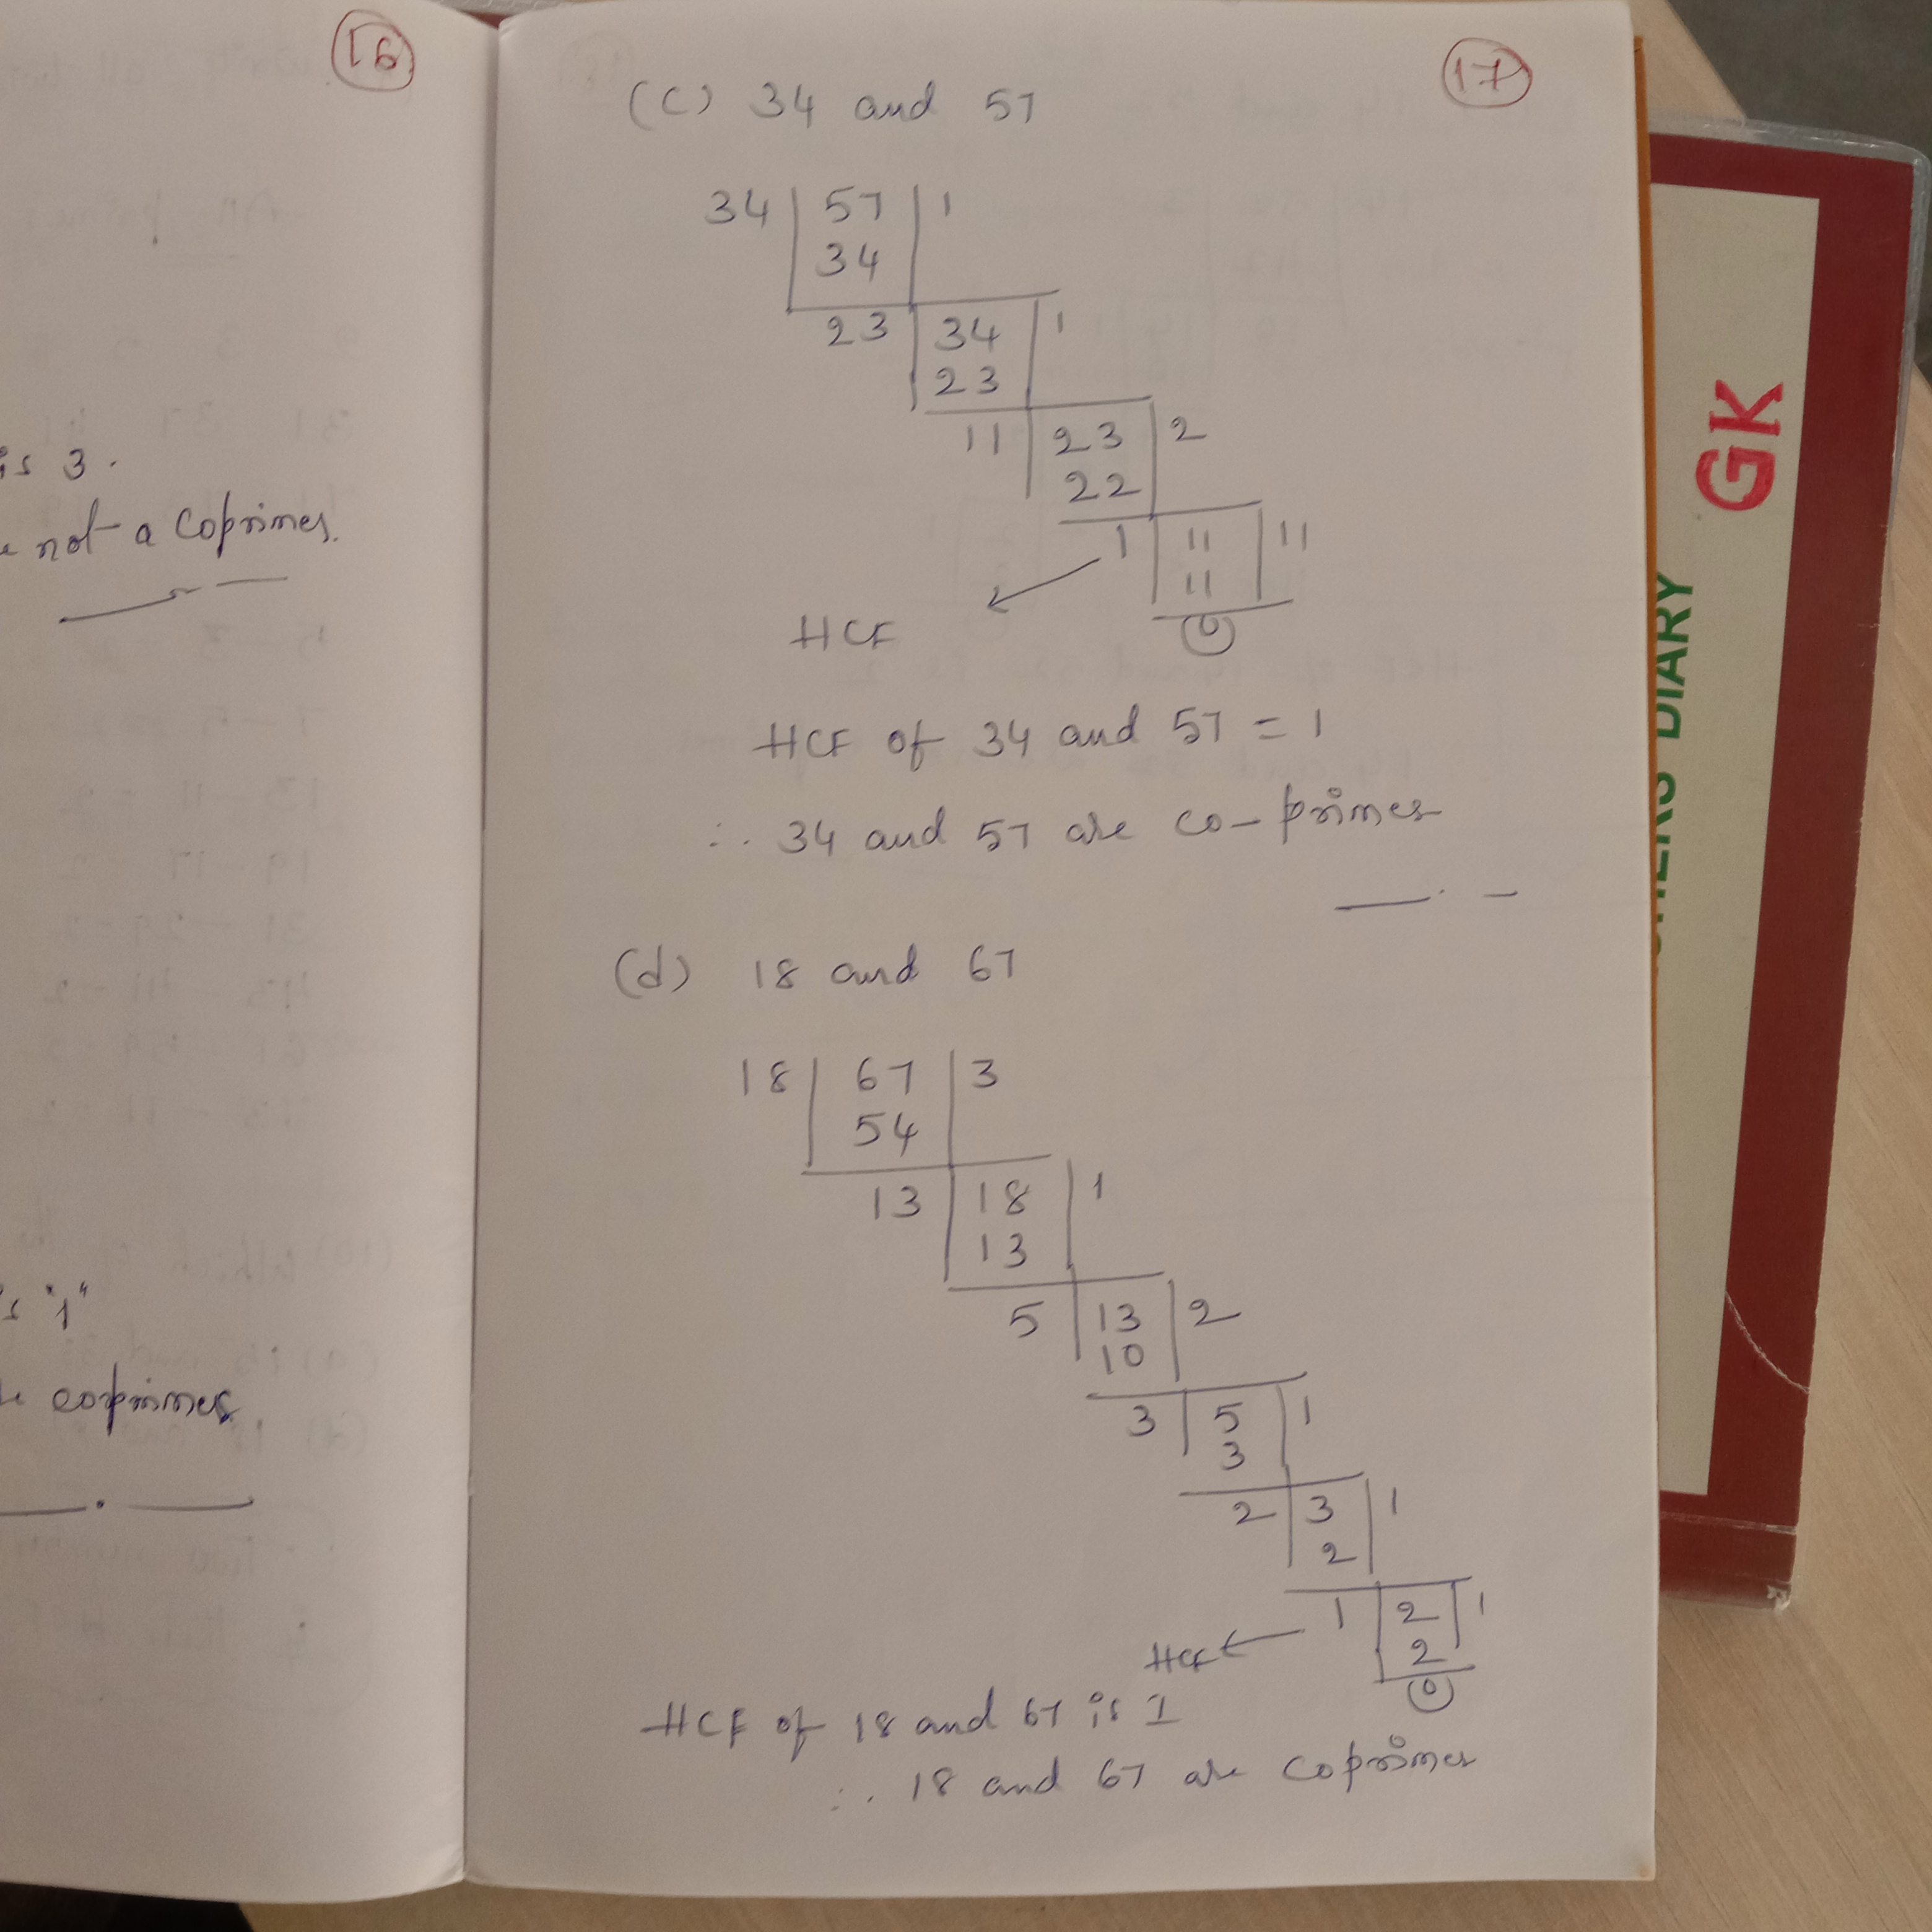 16
is 3.
not a Coprimes.
is "1"
coprimes
17
(C) 34 and 57
34 57 1
34
23 34 1
23
11 23 2
22
1 11 11
11
HCF 0
HCF of 34 and 57 = 1
∴ 34 and 57 are co-primes
(d) 18 and 67
18 67 3
54
13 18 1
13
5 13 2
10
3 5 1
3
2 3 1
2
1 2 1
HCF 2
0
HCF of 18 and 67 is 1
∴ 18 and 67 are coprimes
GK
DIARY